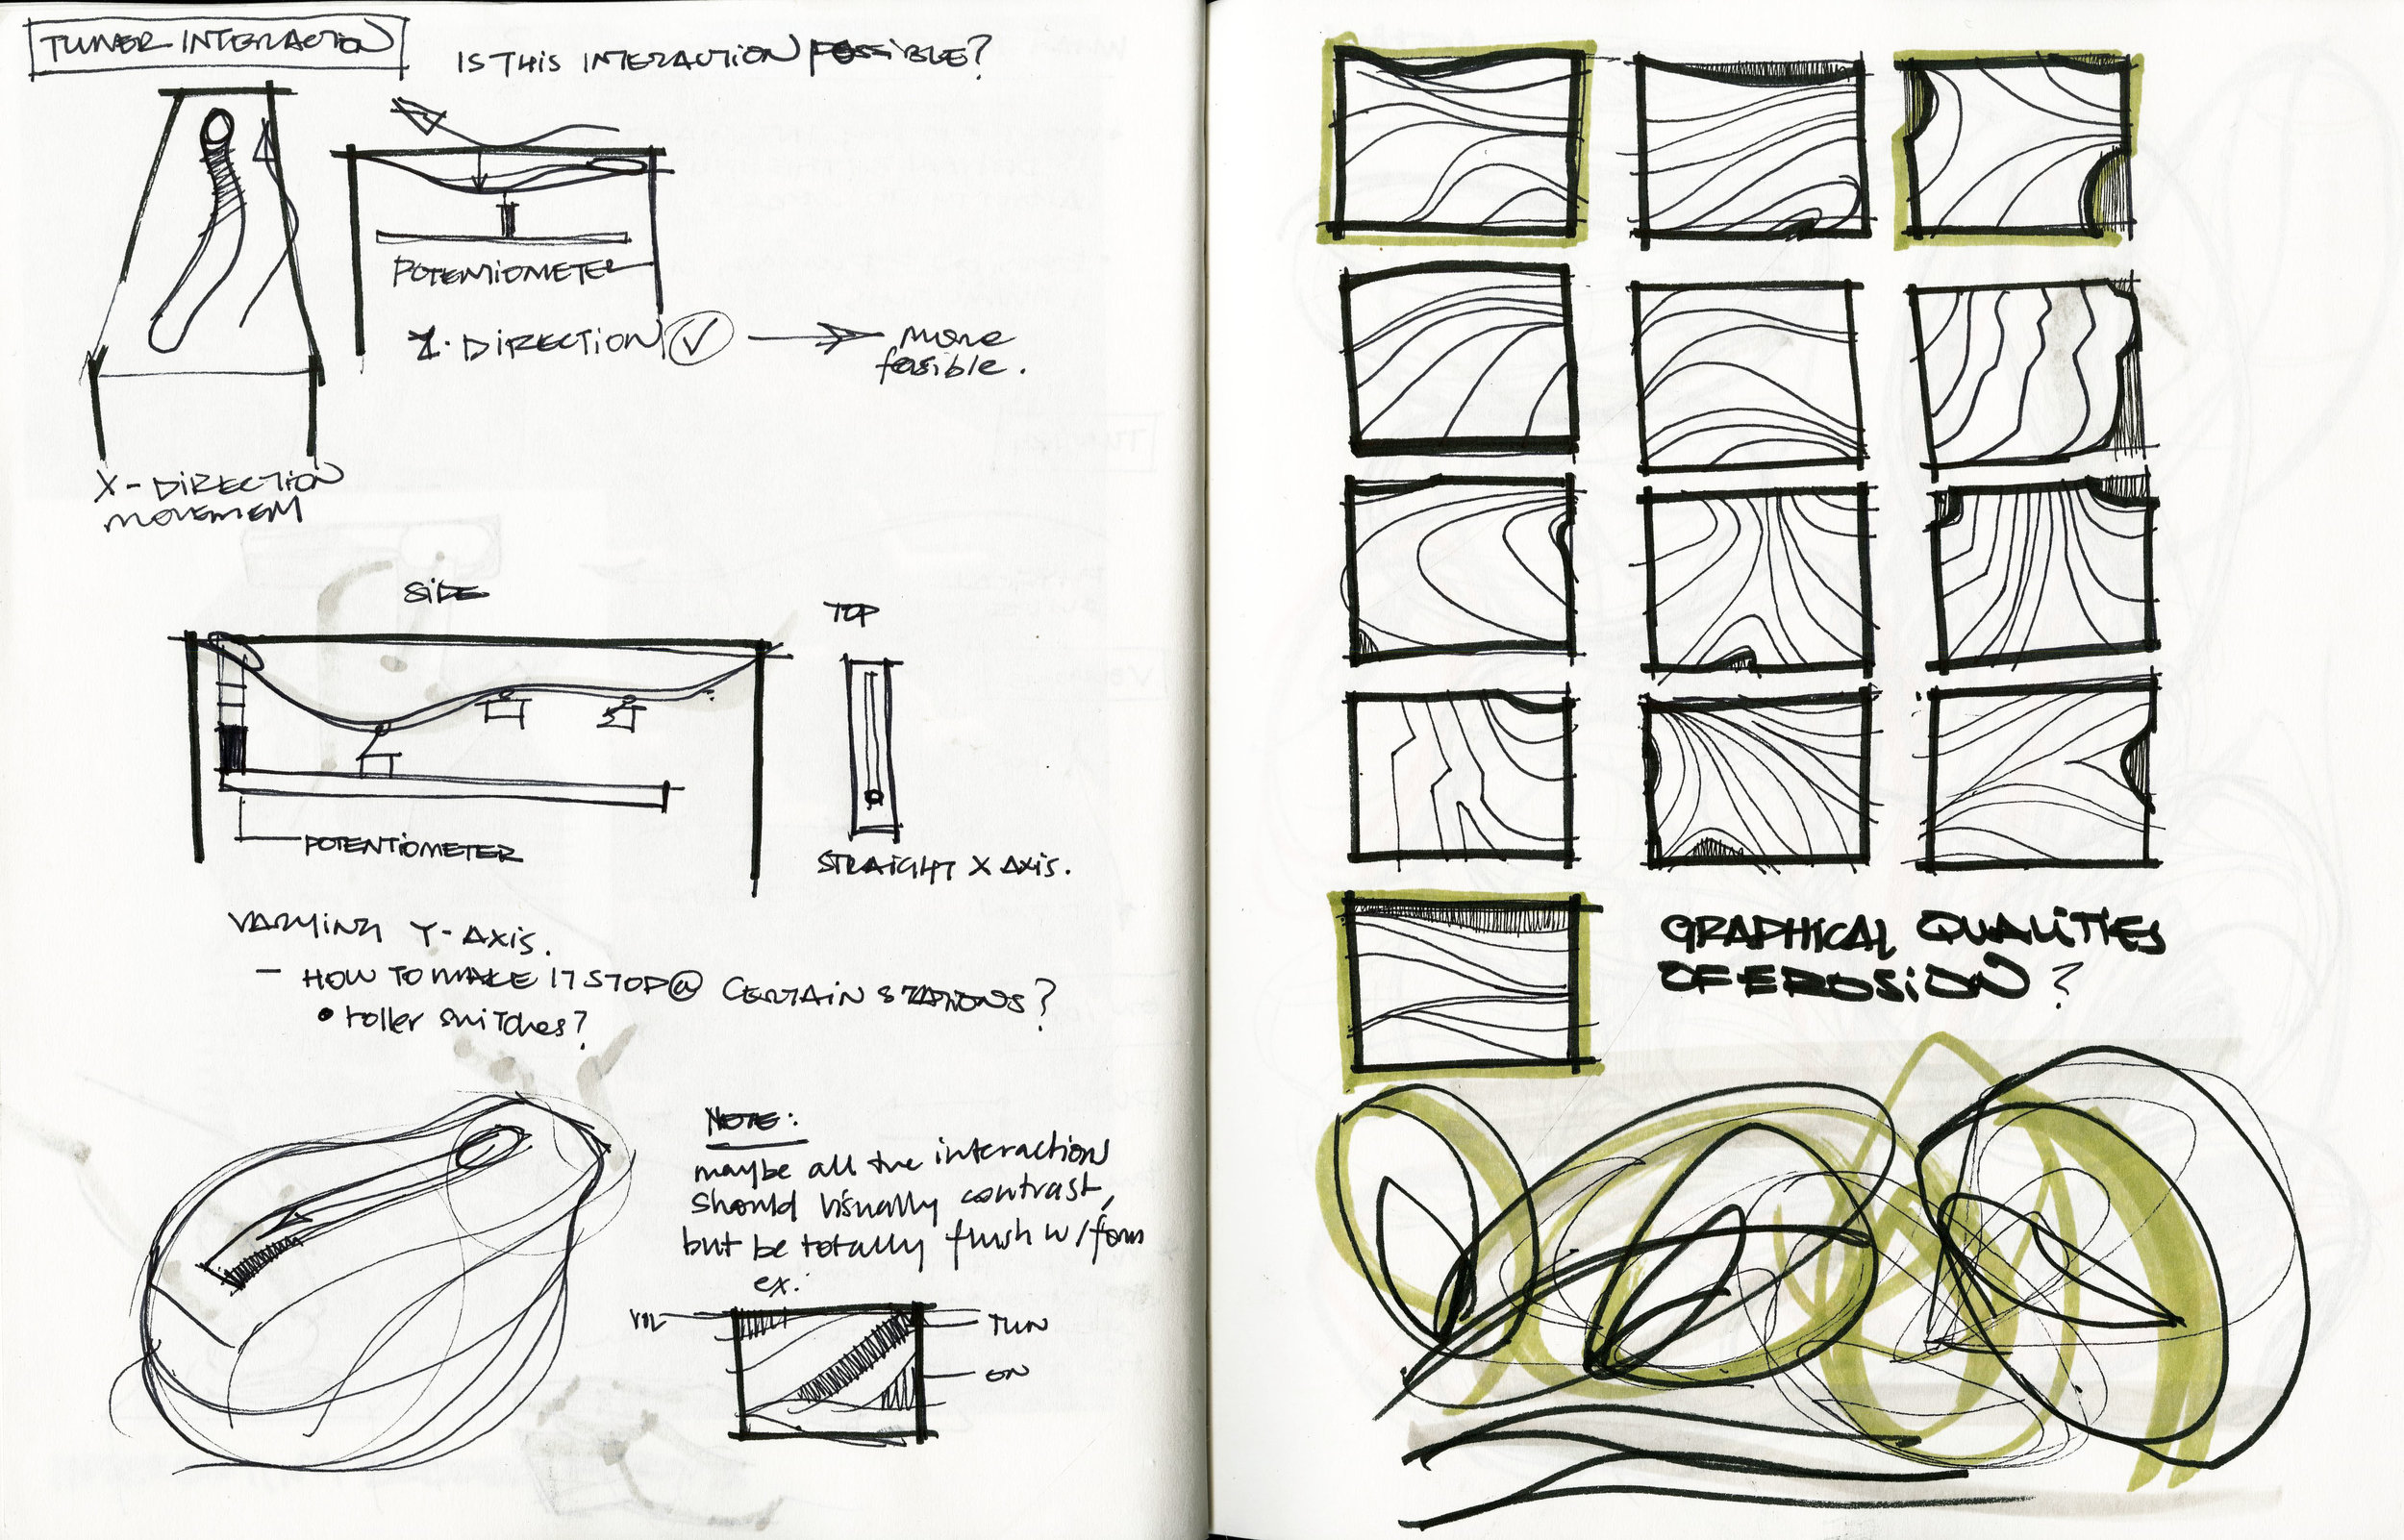 TUNER INTERACTION
IS THIS INTERACTION POSSIBLE?
POTENTIOMETER
Z-DIRECTION ✓ → more
feasible.
X-DIRECTION
MOVEMENT
SIDE
TOP
POTENTIOMETER
STRAIGHT X AXIS.
VARYING Y-AXIS.
- HOW TO MAKE IT STOP @ CERTAIN STATIONS?
• roller switches?
NOTE:
maybe all the interaction
should visually contrast,
but be totally flush w/ form
ex:
VOL
TUN
ON
GRAPHICAL QUALITIES
OF EROSION?